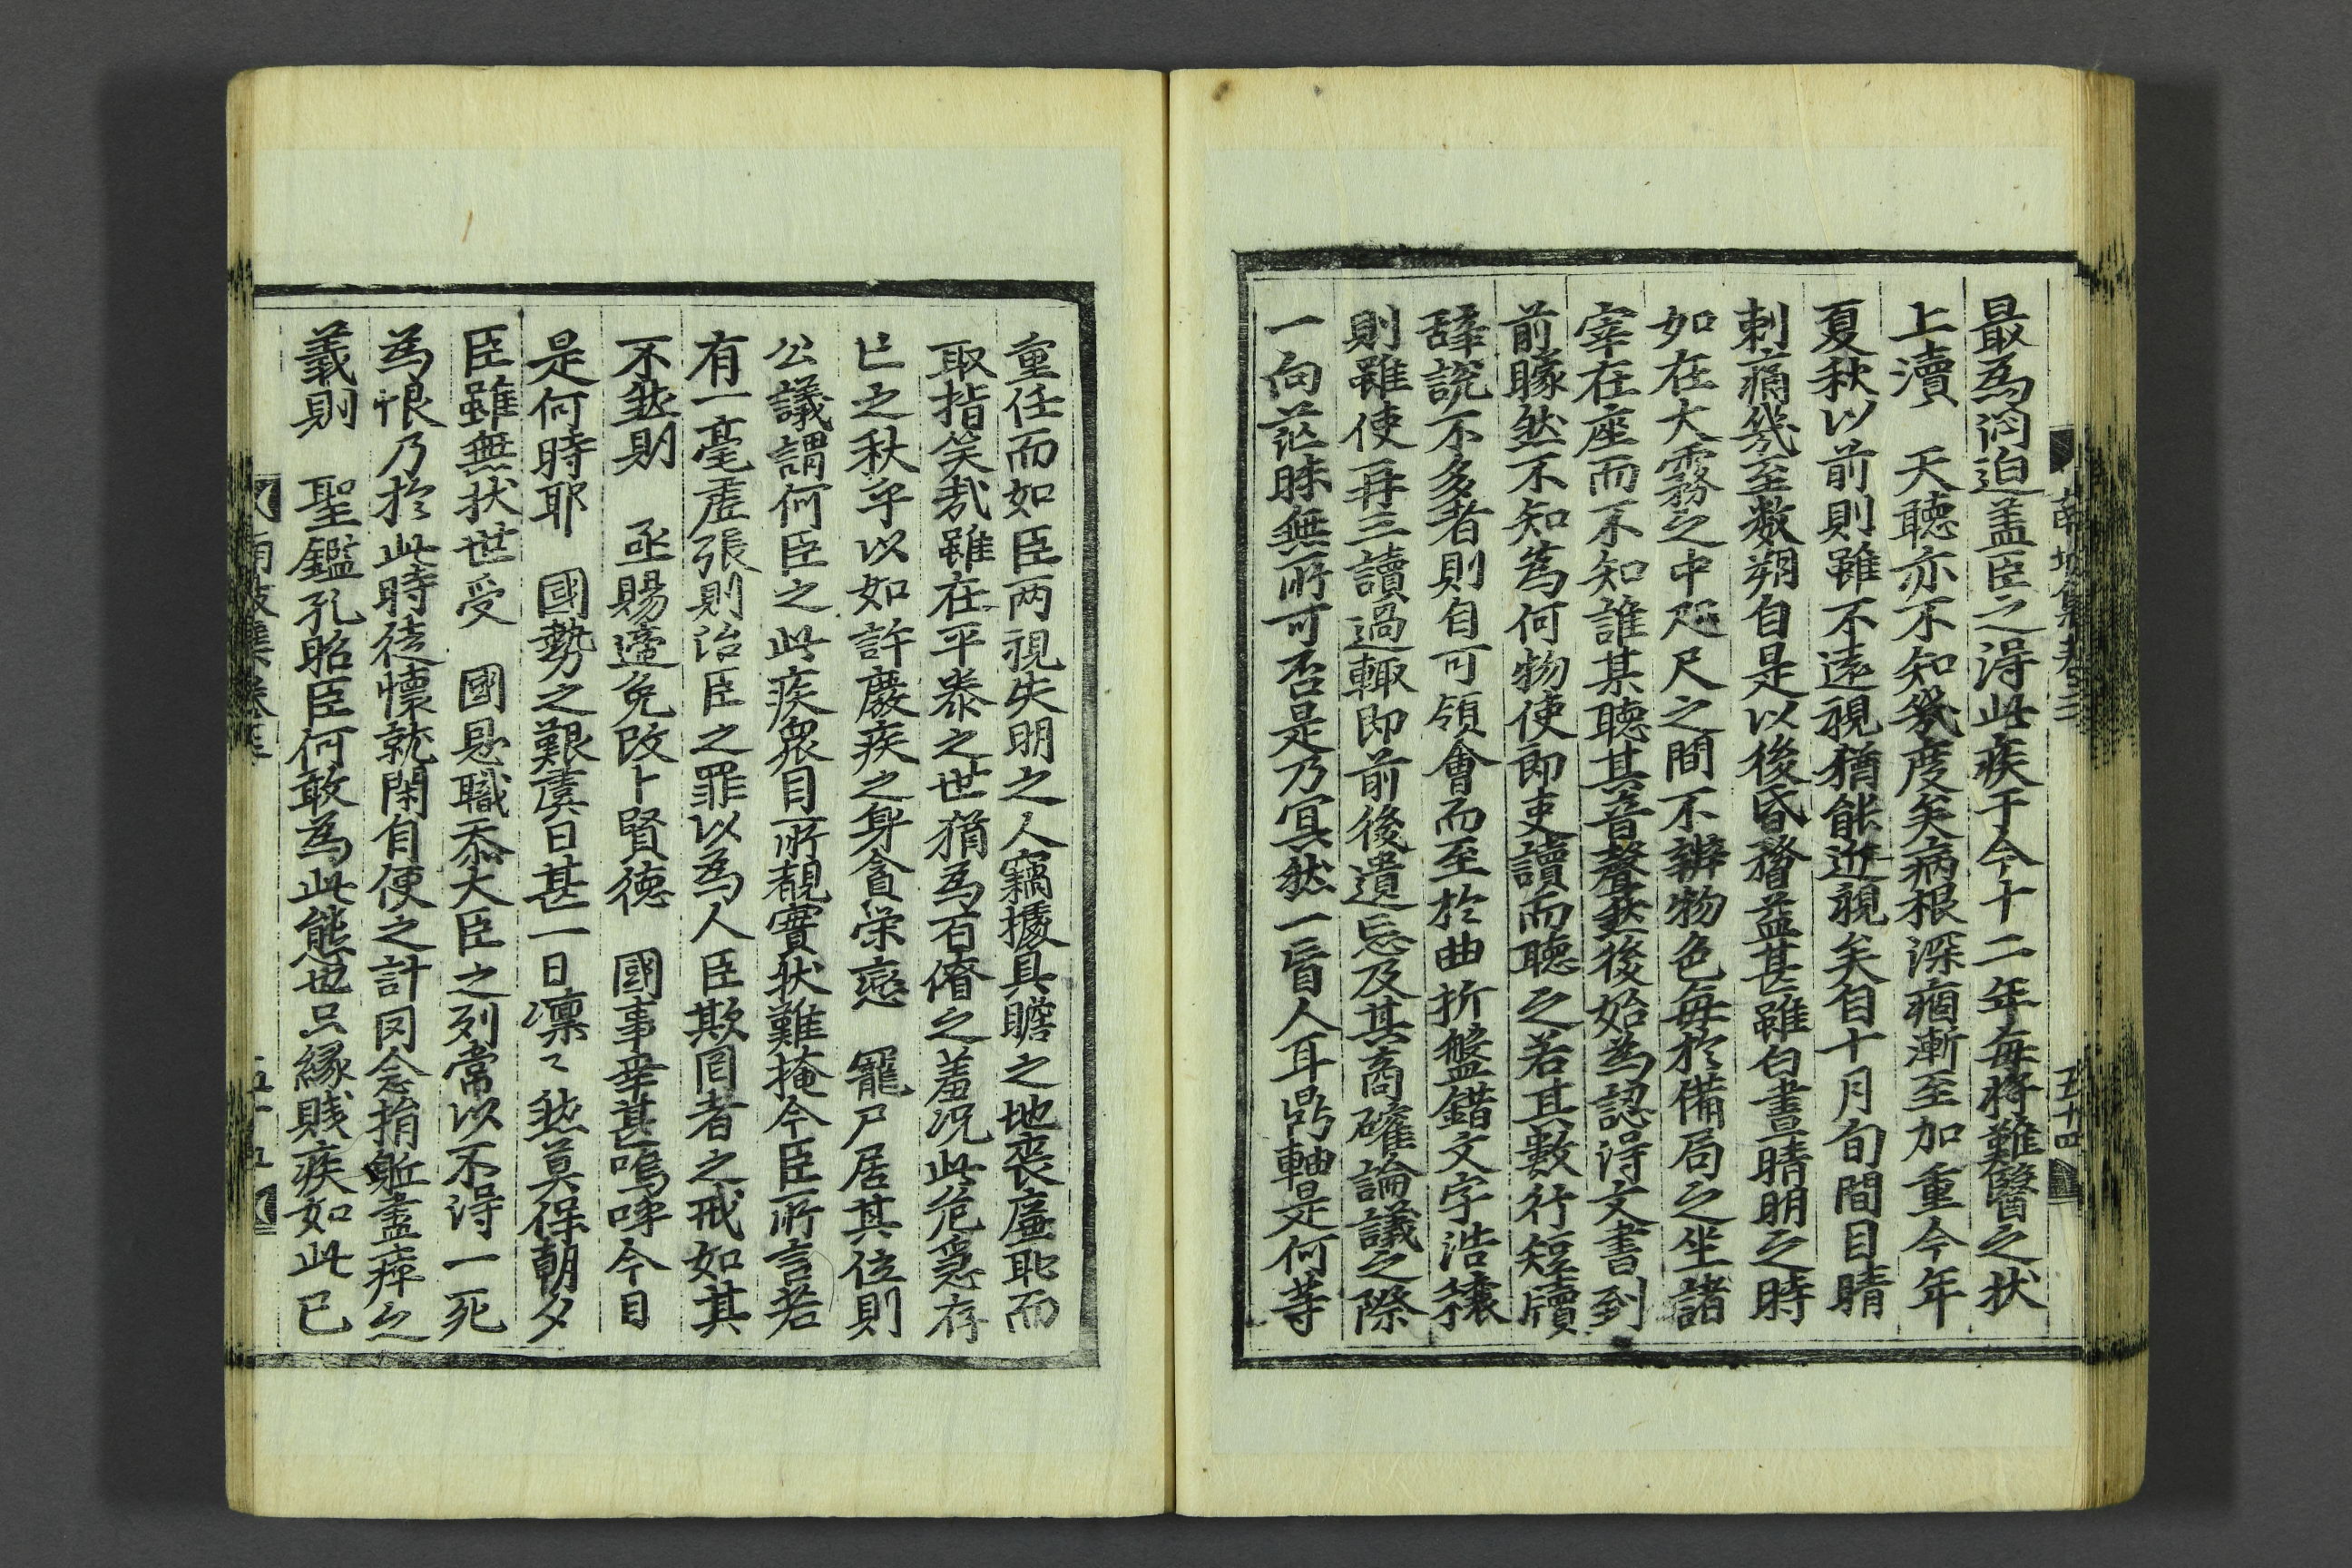 最為悶迫盖臣之淂此疾于今十二年每將難醫之状
上瀆　天聽亦不知幾度矣病根深痼漸至加重今年
夏秋以前則雖不遠視猶能近視矣自十月旬間目睛
刺痛幾至數朔自是以後昏瞀益甚雖白晝晴明之時
如在大霧之中咫尺之間不辨物色每於備局之坐諸
宰在座而不知誰某聽其音聲然後始為認淂文書到
前矇然不知為何物使郎吏讀而聽之若其數行短牘
辭說不多者則自可領會而至於曲折盤錯文字浩穰
則雖使再三讀過輙即前後遺忘及其商確論議之際
一向茫昧無所可否是乃冥然一盲人耳鼎軸是何等
重任而如臣两視失明之人竊據具瞻之地喪廉耻而
取指笑哉雖在平泰之世猶為百僚之羞况此危急存
亡之秋乎以如許廢疾之身貪榮戀　寵尸居其位則
公議謂何臣之此疾衆目所覩實状難掩今臣所言若
有一毫虗張則治臣之罪以為人臣欺罔者之戒如其
不然則　亟賜遞免改卜賢德　國事幸甚嗚呼今日
是何時耶　國勢之艱虞日甚一日凜〻然莫保朝夕
臣雖無状世受　國恩職忝大臣之列常以不淂一死
為恨乃於此時徒懷就閑自便之計罔念捐軀盡瘁之
義則　聖鑑孔昭臣何敢為此態也只緣賤疾如此已
南坡集卷三
五十四
南坡集卷三
五十五